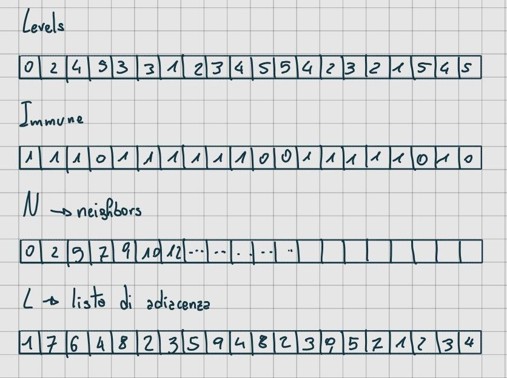 Levels
0 2 4 5 3 3 1 2 3 4 5 5 4 2 3 2 1 5 4 5
Immune
1 1 1 0 1 1 1 1 1 1 0 0 1 1 1 1 1 0 1 0
N → neighbors
0 2 5 7 9 10 12 ... ... .. .. ..
L → lista di adiacenza
1 7 6 4 8 2 3 5 9 4 8 2 3 9 5 7 1 2 3 4